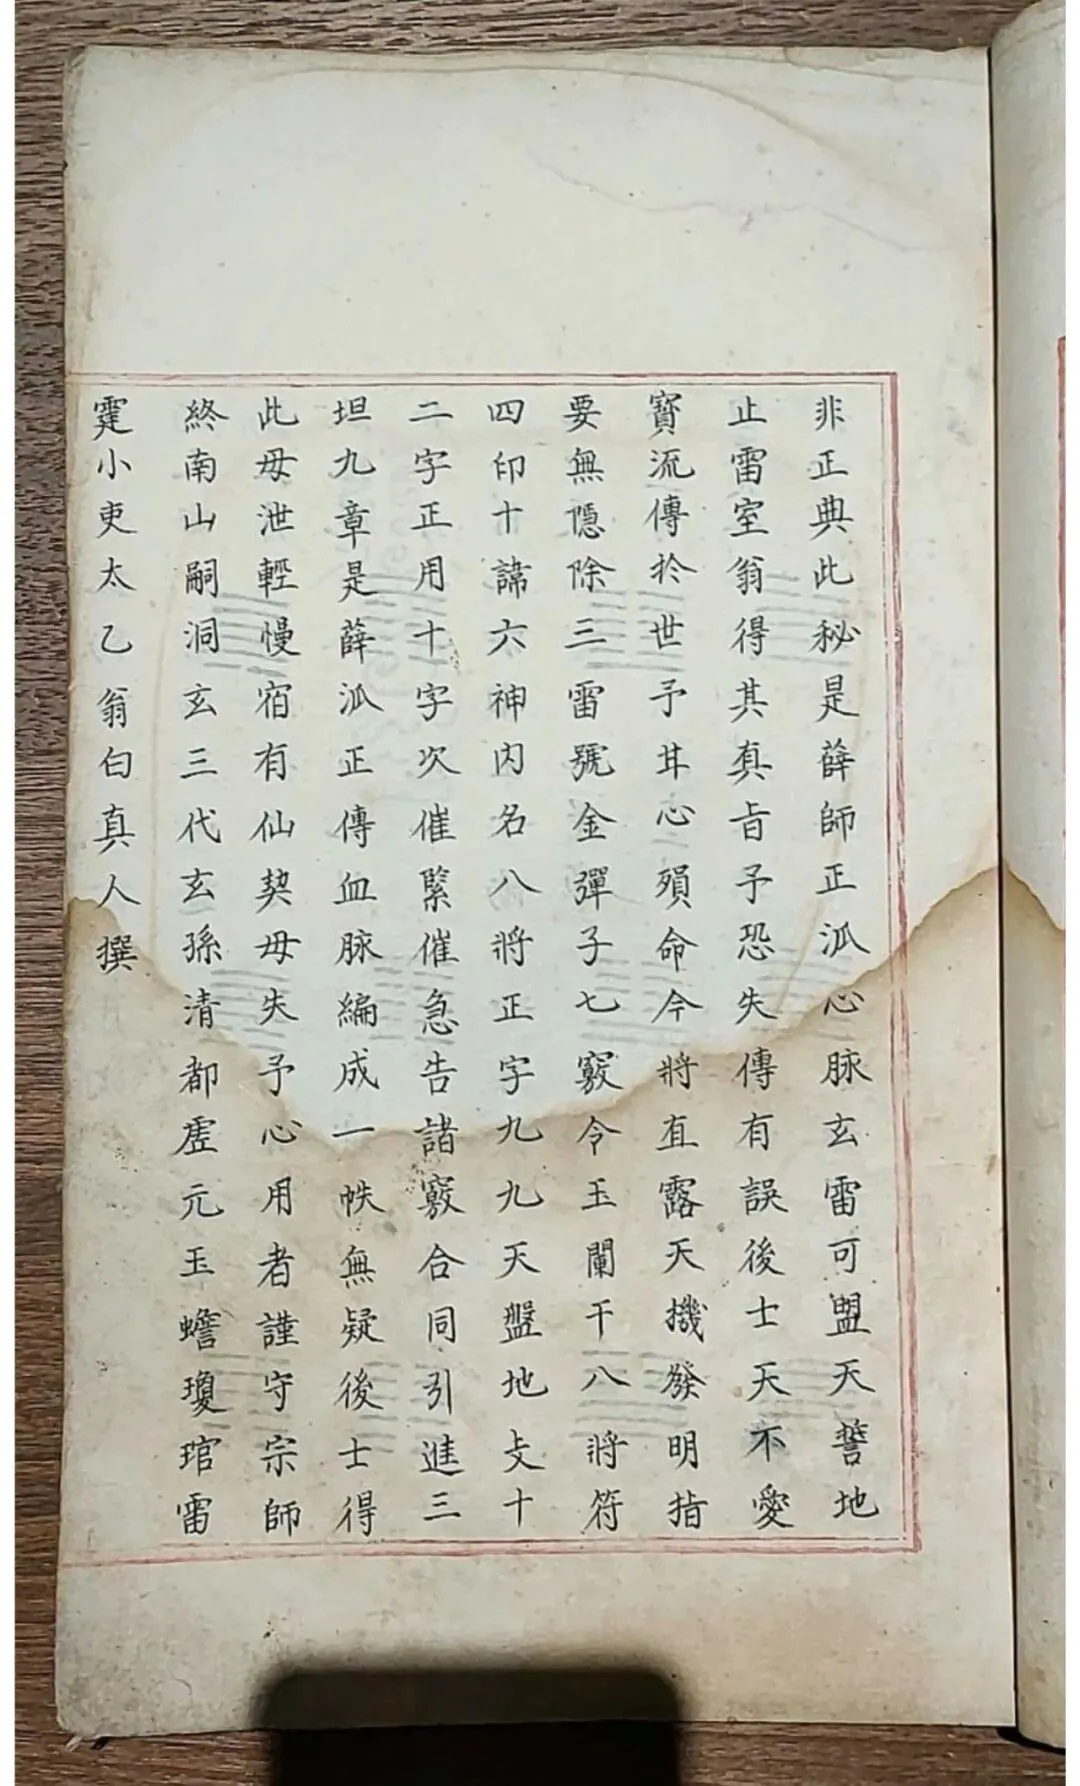 非正典此秘是薛師正泒心脉玄雷可盟天誓地
止雷室翁得其真旨予恐失傳有誤後士天不愛
寳流傳於世予甘心殞命今將直露天機發明指
要無隱除三雷號金彈子七竅令玉闌干八將符
四印十諱六神内名八將正字九九天盤地支十
二字正用十字次催緊催急告諸竅合同引進三
坦九章是薛泒正傳血脉編成一帙無疑後士得
此毋泄輕慢宿有仙契毋失予心用者謹守宗師
終南山嗣洞玄三代玄孫清都虗元玉蟾瓊琯雷
霆小吏太乙翁白真人撰